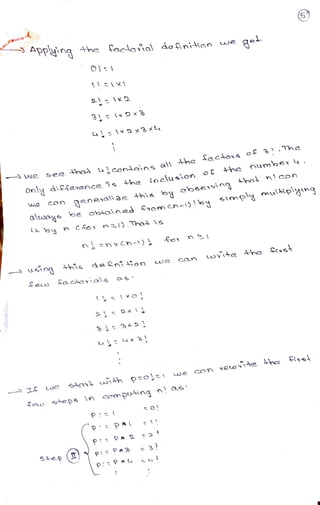 5
→ Applying the factorial definition we get
0! = 1
1! = 1x1
2! = 1x2
3! = 1x2x3
4! = 1x2x3x4
→ we see that 4! contains all the factors of 3!. The
only difference is the inclusion of the number 4.
we can generalise this by observing that n! can
always be obtained from (n-1)! by simply multiplying
it by n (for n≥1). That is
n! = nx(n-1)! for n≥1
→ using this definition we can write the first
few factorials as:
1! = 1x0!
2! = 2x1!
3! = 3x2!
4! = 4x3!
⋮
→ If we start with p=0!=1 we can rewrite the first
few steps in computing n! as:
p := 1 = 0!
p := p*1 = 1!
p := p*2 = 2!
Step II p := p*3 = 3!
p := p*4 = 4!
⋮ ⋮